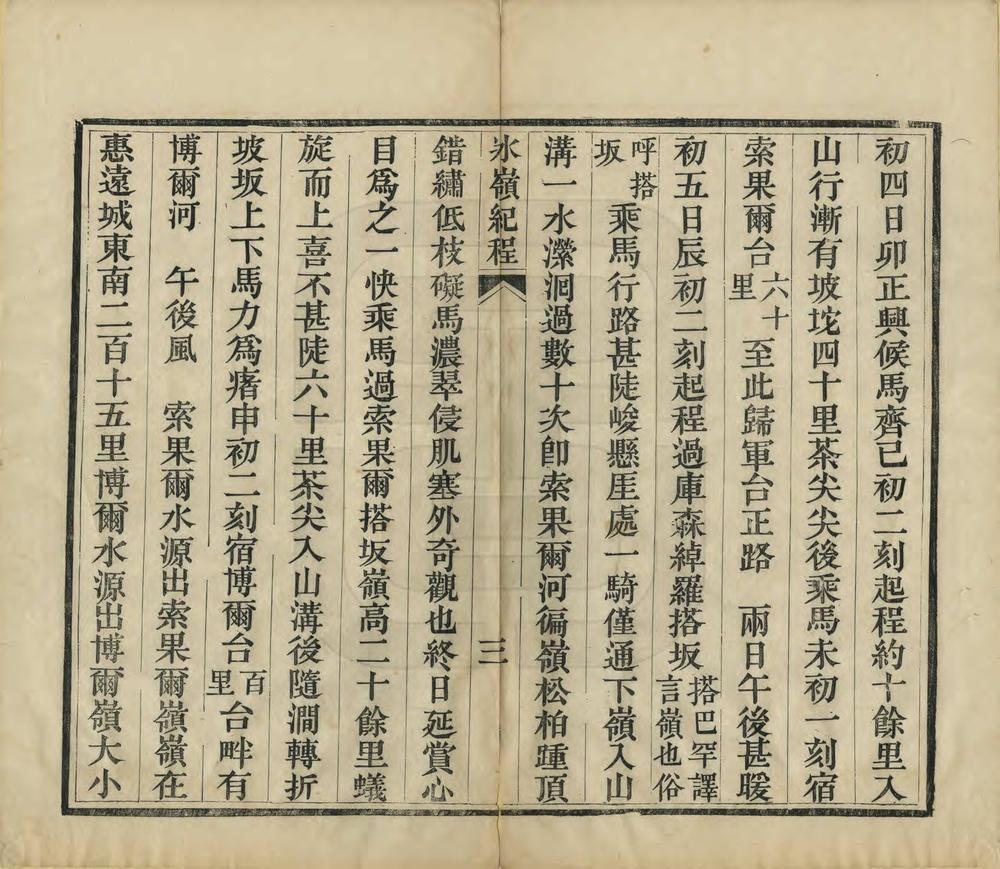 初四日卯正興候馬齊己初二刻起程約十餘里入
山行漸有坡坨四十里茶尖尖後乘馬未初一刻宿
索果爾台六十里至此歸軍台正路　兩日午後甚暖
初五日辰初二刻起程過庫森綽羅搭坂搭巴罕譯言嶺也俗
呼搭坂乘馬行路甚陡峻懸厓處一騎僅通下嶺入山
溝一水瀠洄過數十次卽索果爾河徧嶺松柏踵頂
氷嶺紀程　三
錯繡低枝礙馬濃翠侵肌塞外奇觀也終日延賞心
目爲之一快乘馬過索果爾搭坂嶺高二十餘里蟻
旋而上喜不甚陡六十里茶尖入山溝後隨澗轉折
坡坂上下馬力爲瘏申初二刻宿博爾台百里台畔有
博爾河　午後風　索果爾水源出索果爾嶺嶺在
惠遠城東南二百十五里博爾水源出博爾嶺大小